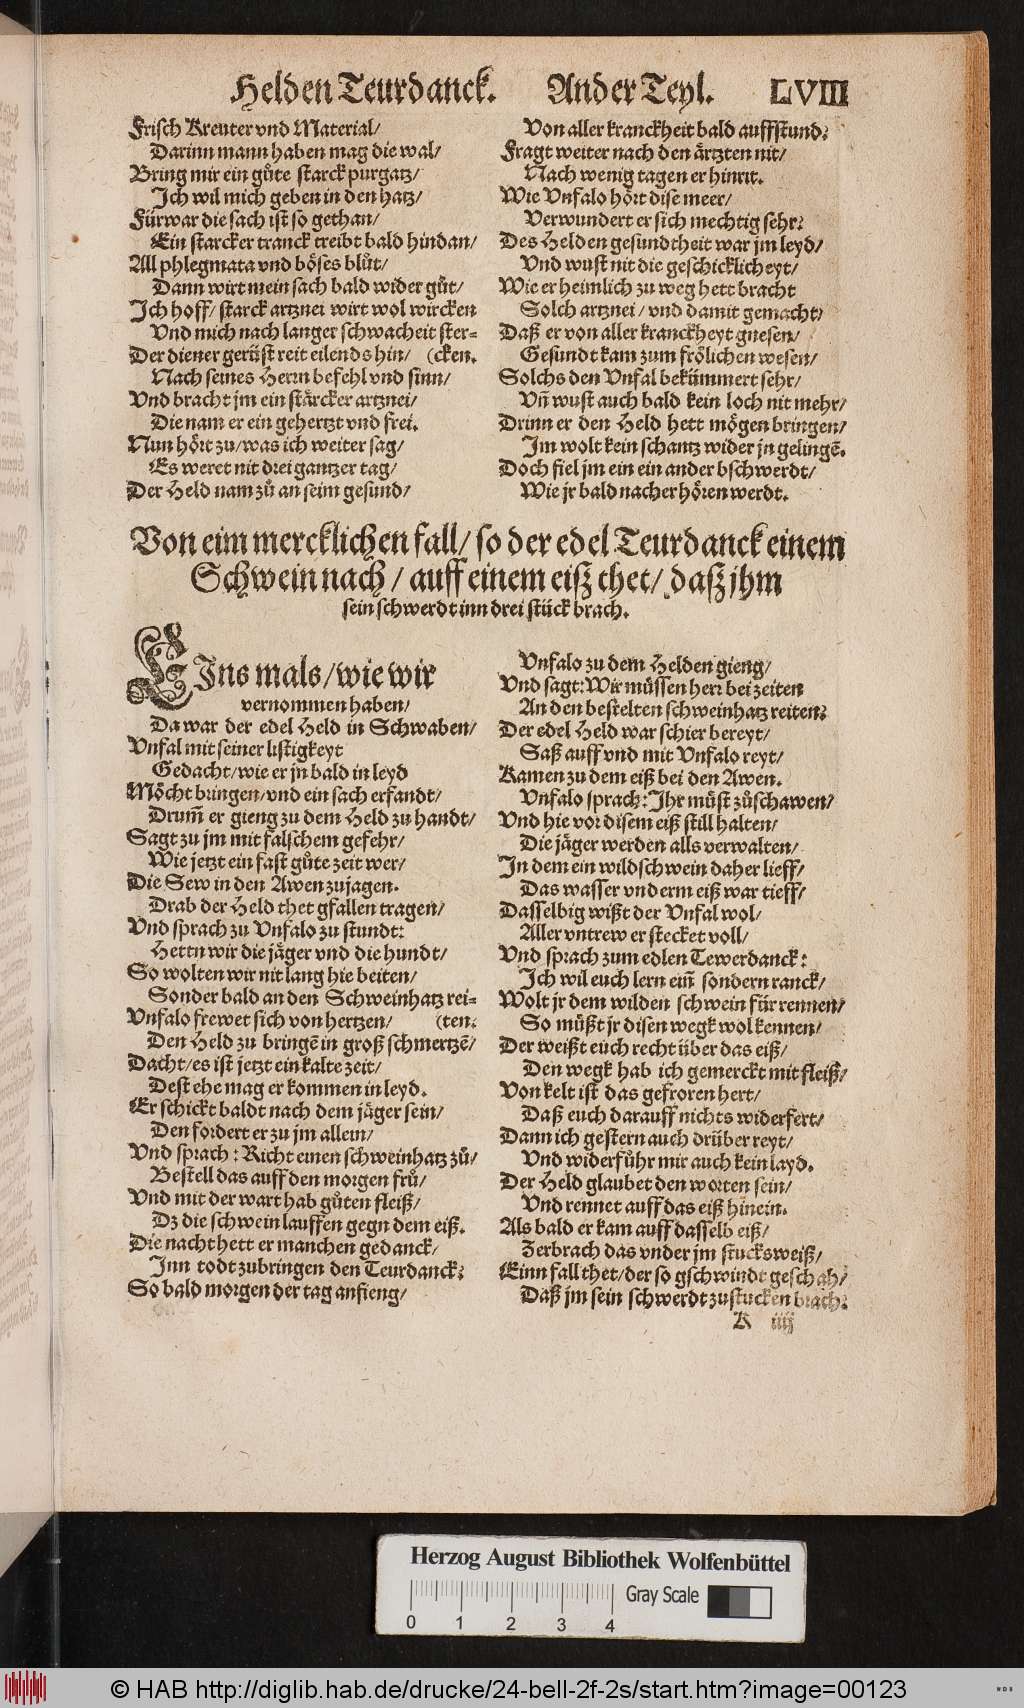 Helden Teurdanck. Ander Teyl. LVIII
Frisch Kreuter vnd Material/
Darinn mann haben mag die wal/
Bring mir ein gůte starck purgatz/
Jch wil mich geben in den hatz/
Fürwar die sach ist so gethan/
Ein starcker tranck treibt bald hindan/
All phlegmata vnd böses blůt/
Dann wirt mein sach bald wider gůt/
Jch hoff/ starck artznei wirt wol wircken
Vnd mich nach langer schwacheit ster-
Der diener gerüst reit eilends hin/ (cken.
Nach seines Herrn befehl vnd sinn/
Vnd bracht jm ein stärcker artznei/
Die nam er ein gehertzt vnd frei.
Nun hört zu/ was ich weiter sag/
Es weret nit drei gantzer tag/
Der Held nam zů an seim gesund/
Von aller kranckheit bald auffstund:
Fragt weiter nach den ärtzten nit/
Nach wenig tagen er hinrit.
Wie Vnfalo hört dise meer/
Verwundert er sich mechtig sehr:
Des Helden gesundtheit war jm leyd/
Vnd wust nit die geschicklicheyt/
Wie er heimlich zu weg hett bracht
Solch artznei/ vnd damit gemacht/
Daß er von aller kranckheyt gnesen/
Gesundt kam zum frölichen wesen/
Solchs den Vnfal bekümmert sehr/
Vñ wust auch bald kein loch nit mehr/
Drinn er den Held hett mögen bringen/
Jm wolt kein schantz wider jn gelingẽ.
Doch fiel jm ein ein ander bschwerdt/
Wie jr bald nacher hören werdt.
Von eim mercklichen fall/ so der edel Teurdanck einem
Schwein nach/ auff einem eiß thet/ daß jhm
sein schwerdt inn drei stück brach.
EJns mals/ wie wir
vernommen haben/
Da war der edel Held in Schwaben/
Vnfal mit seiner listigkeyt
Gedacht/ wie er jn bald in leyd
Möcht bringen/ vnd ein sach erfandt/
Drumm̃ er gieng zu dem Held zu handt/
Sagt zu jm mit falschem gefehr/
Wie jetzt ein fast gůte zeit wer/
Die Sew in den Awen zujagen.
Drab der Held thet gfallen tragen/
Vnd sprach zu Vnfalo zu stundt:
Hettn wir die jäger vnd die hundt/
So wolten wir nit lang hie beiten/
Sonder bald an den Schweinhatz rei-
Vnfalo frewet sich von hertzen/ (ten.
Den Held zu bringẽ in groß schmertzẽ/
Dacht/ es ist jetzt ein kalte zeit/
Dest ehe mag er kommen in leyd.
Er schickt baldt nach dem jäger sein/
Den fordert er zu jm allein/
Vnd sprach: Richt einen schweinhatz zů/
Bestell das auff den morgen frů/
Vnd mit der wart hab gůten fleiß/
Dz die schwein lauffen gegn dem eiß.
Die nacht hett er manchen gedanck/
Jnn todt zubringen den Teurdanck:
So bald morgen der tag anfieng/
Vnfalo zu dem Helden gieng/
Vnd sagt: Wir müssen herr bei zeiten
An den bestelten schweinhatz reiten:
Der edel Held war schier bereyt/
Saß auff vnd mit Vnfalo reyt/
Kamen zu dem eiß bei den Awen.
Vnfalo sprach: Jhr müst zůschawen/
Vnd hie vor disem eiß still halten/
Die jäger werden alls verwalten/
Jn dem ein wildschwein daher lieff/
Das wasser vnderm eiß war tieff/
Dasselbig wißt der Vnfal wol/
Aller vntrew er stecket voll/
Vnd sprach zum edlen Tewerdanck:
Jch wil euch lern ein̄ sondern ranck/
Wolt jr dem wilden schwein für rennen/
So müßt jr disen wegk wol kennen/
Der weißt euch recht über das eiß/
Den wegk hab ich gemerckt mit fleiß/
Von kelt ist das gefroren hert/
Daß euch darauff nichts widerfert/
Dann ich gestern auch drüber reyt/
Vnd widerfůhr mir auch kein layd.
Der Held glaubet den worten sein/
Vnd rennet auff das eiß hinein.
Als bald er kam auff dasselb eiß/
Zerbrach das vnder jm stucksweiß/
Einn fall thet/ der so gschwindt geschah/
Daß jm sein schwerdt zustucken brach:
K iiij
Herzog August Bibliothek Wolfenbüttel
Gray Scale
0 1 2 3 4
© HAB http://diglib.hab.de/drucke/24-bell-2f-2s/start.htm?image=00123